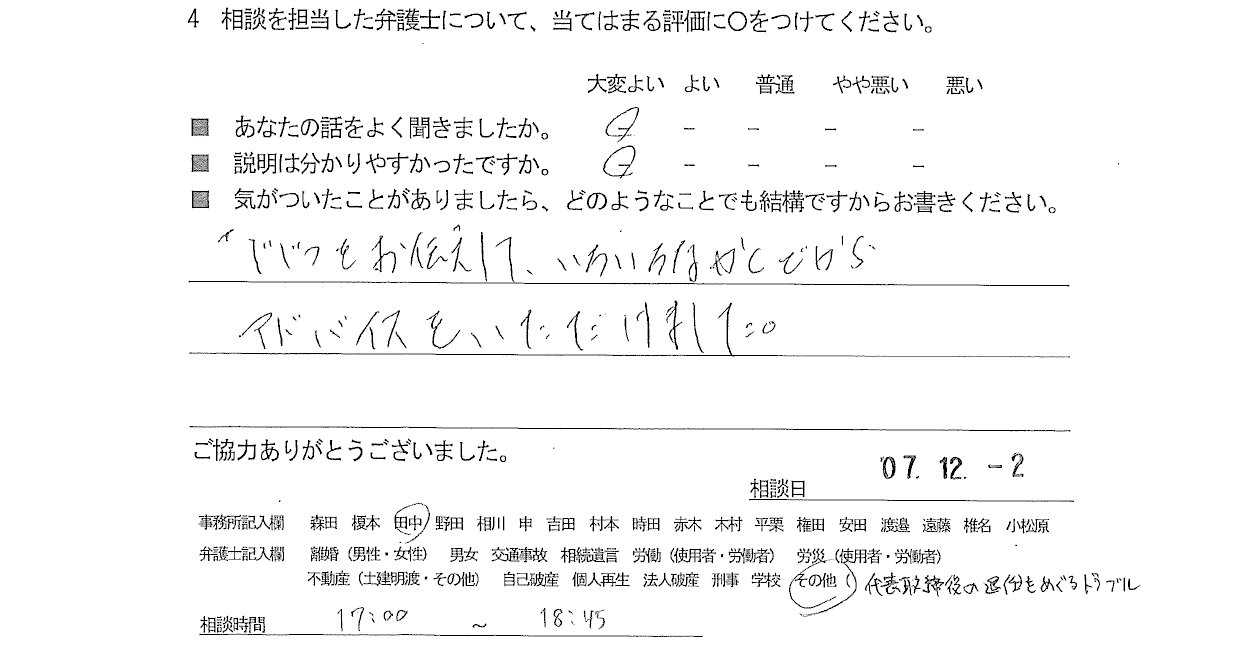 4 相談を担当した弁護士について、当てはまる評価に〇をつけてください。
大変よい よい 普通 やや悪い 悪い
■ あなたの話をよく聞きましたか。 - - - - -
■ 説明は分かりやすかったですか。 - - - - -
■ 気がついたことがありましたら、どのようなことでも結構ですからお書きください。
をお伝えして、いろいろなかくどから
アドバイスをいただけました。
ご協力ありがとうございました。
'07.12.-2
相談日
事務所記入欄 森田 榎本 田中 野田 相川 申 吉田 村本 時田 赤木 木村 平栗 権田 安田 渡邉 遠藤 椎名 小松原
弁護士記入欄 離婚(男性・女性) 男女 交通事故 相続遺言 労働(使用者・労働者) 労災(使用者・労働者)
不動産(土建明渡・その他) 自己破産 個人再生 法人破産 刑事 学校 その他( 代表取締役の をめぐるトラブル
相談時間 17:00 ~ 18:45